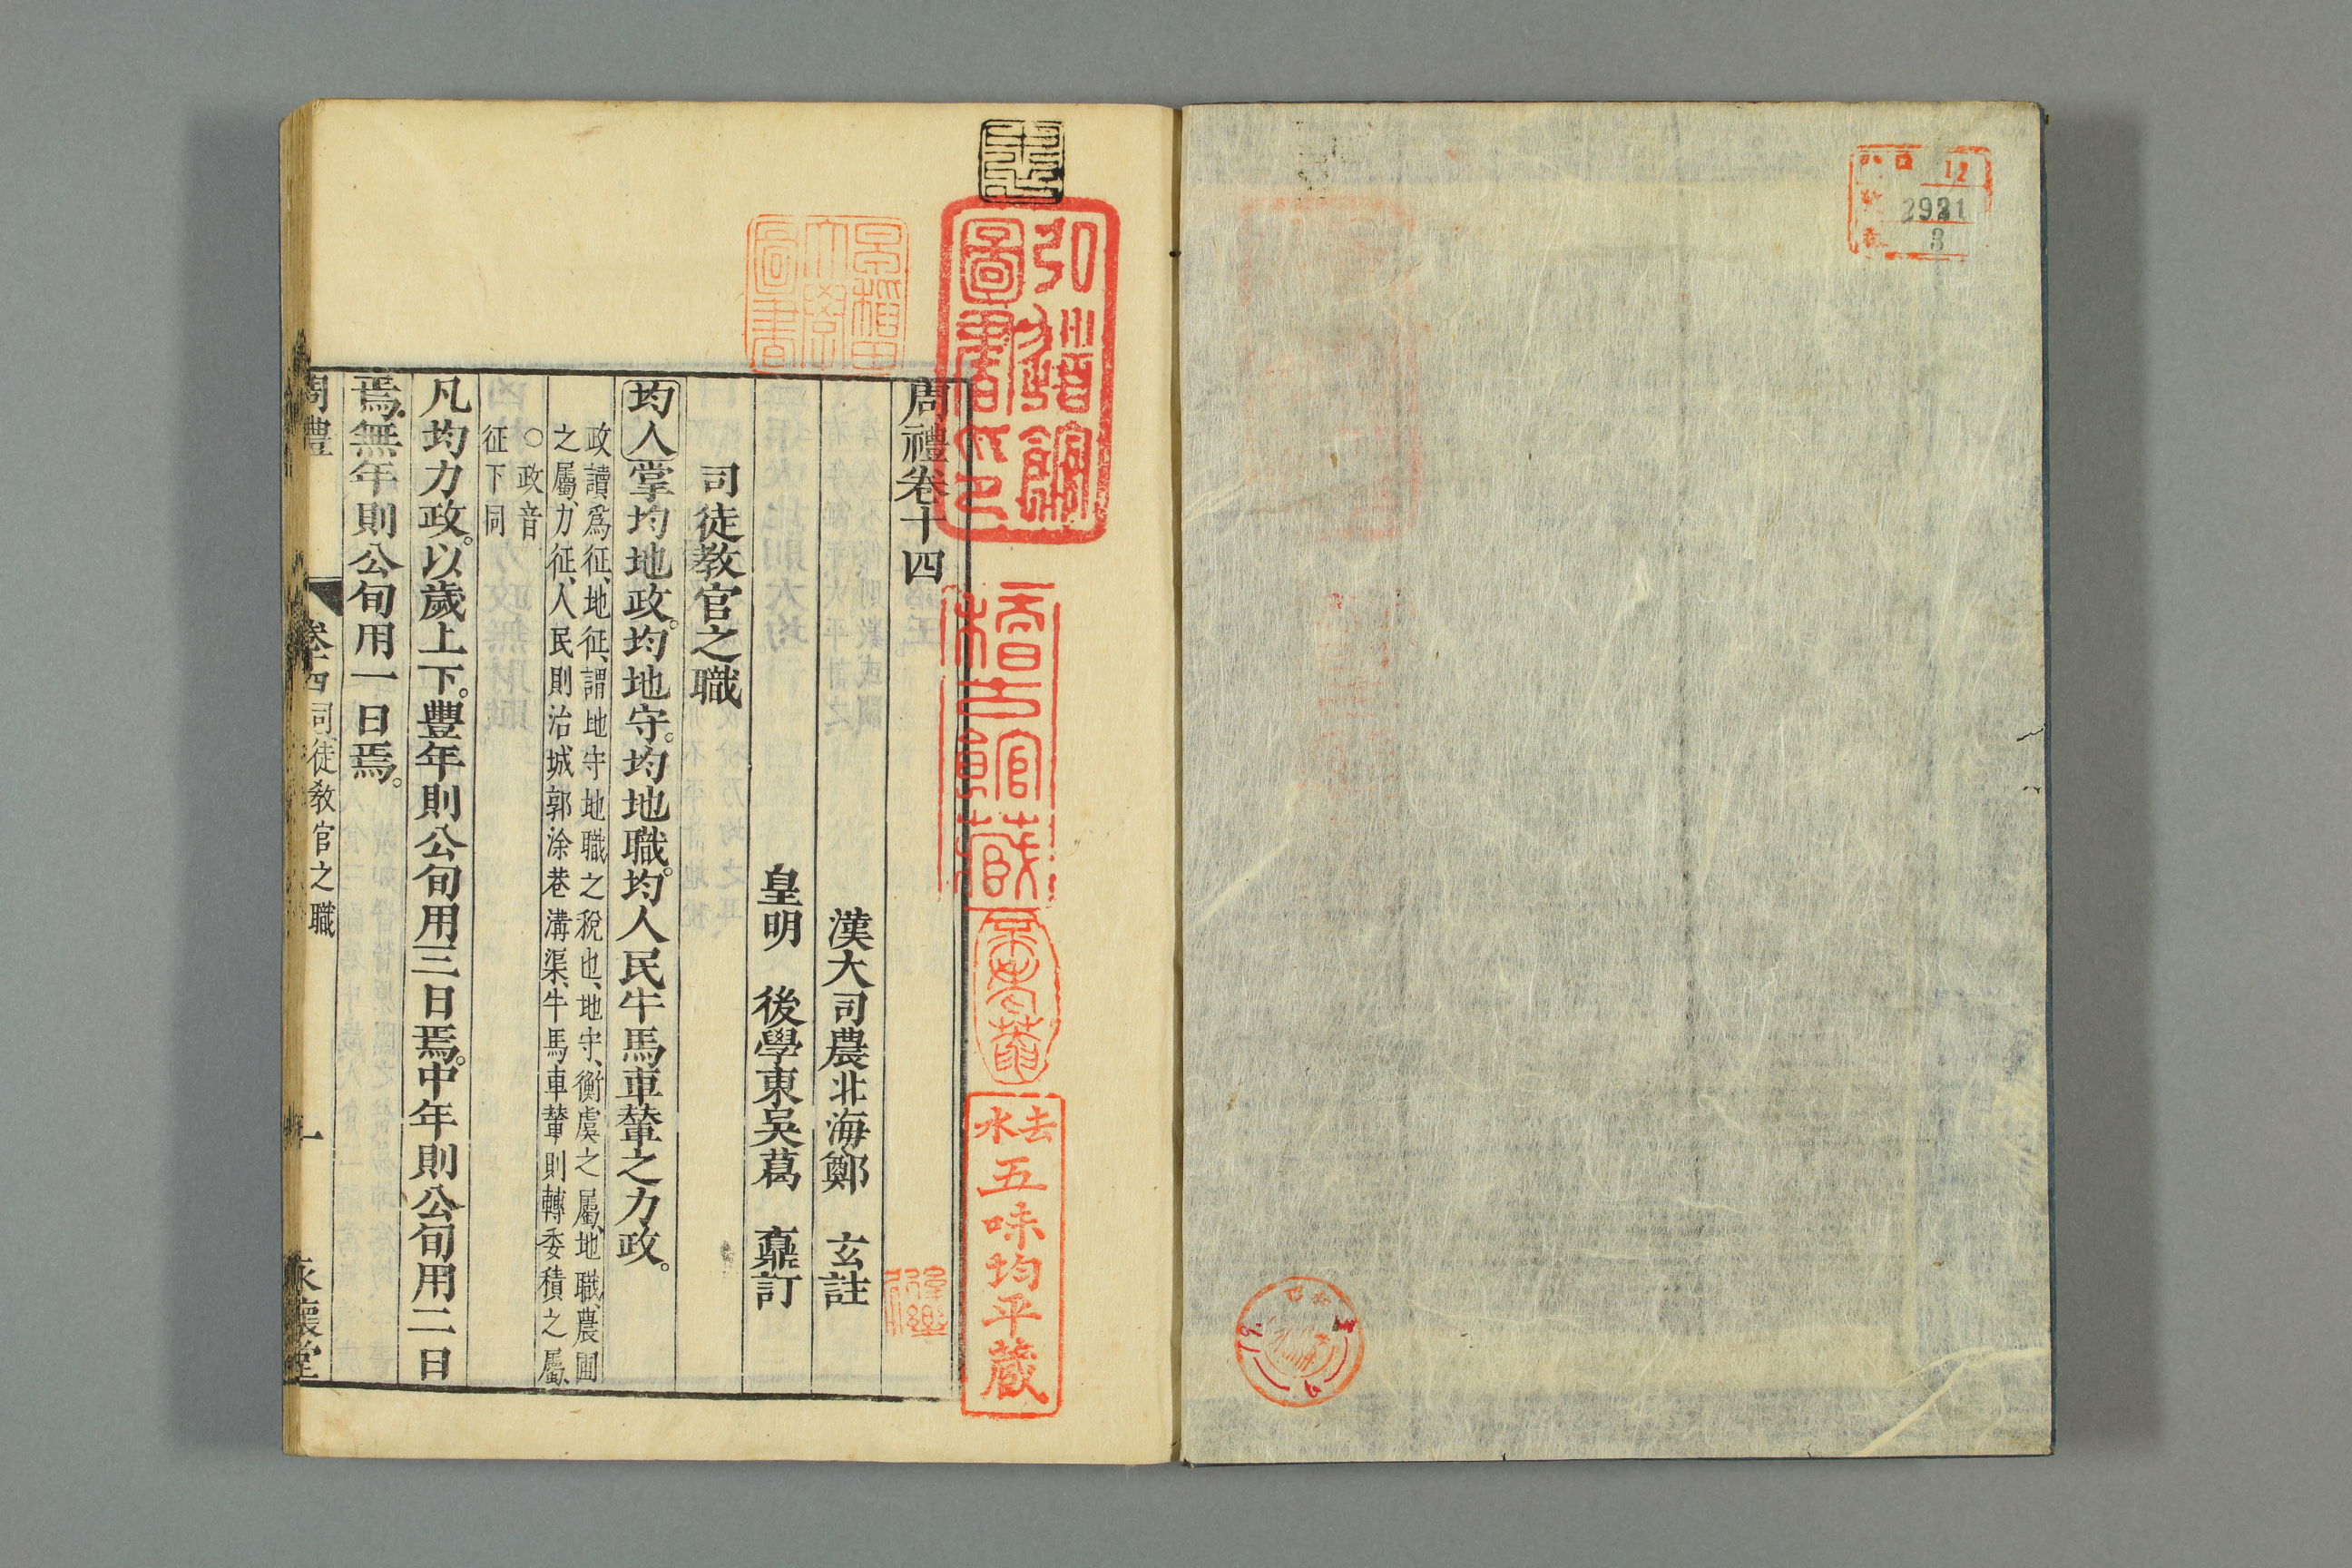 ハ 12
2921
3
弘道館
圖書印
早稲田
大學
圖書
稽古館藏
去水
五味均平藏
周禮卷十四
漢大司農北海鄭 玄註
皇明 後學東吳葛 鼒訂
司徒教官之職
均人掌均地政。均地守。均地職。均人民牛馬車輦之力政。
政讀爲征、地征、謂地守地職之稅也、地守、衡虞之屬、地職、農圃
之屬、力征、人民則治城郭涂巷溝渠、牛馬車輦則轉委積之屬、
○政音
征下同
凡均力政。以歲上下。豐年則公旬用三日焉。中年則公旬用二日
焉。無年則公旬用一日焉。
周禮 卷十四 司徒教官之職 一 永懷堂